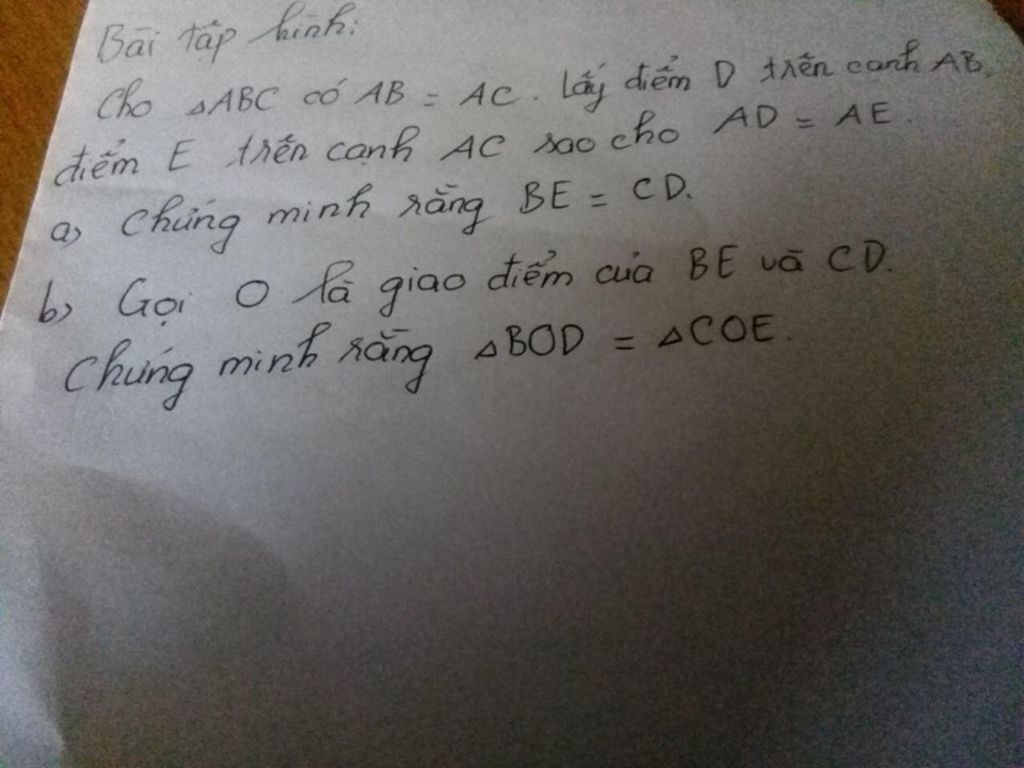 Bài tập hình:
Cho △ABC có AB = AC. Lấy điểm D trên cạnh AB,
điểm E trên cạnh AC sao cho AD = AE.
a, Chứng minh rằng BE = CD.
b, Gọi O là giao điểm của BE và CD.
Chứng minh rằng △BOD = △COE.